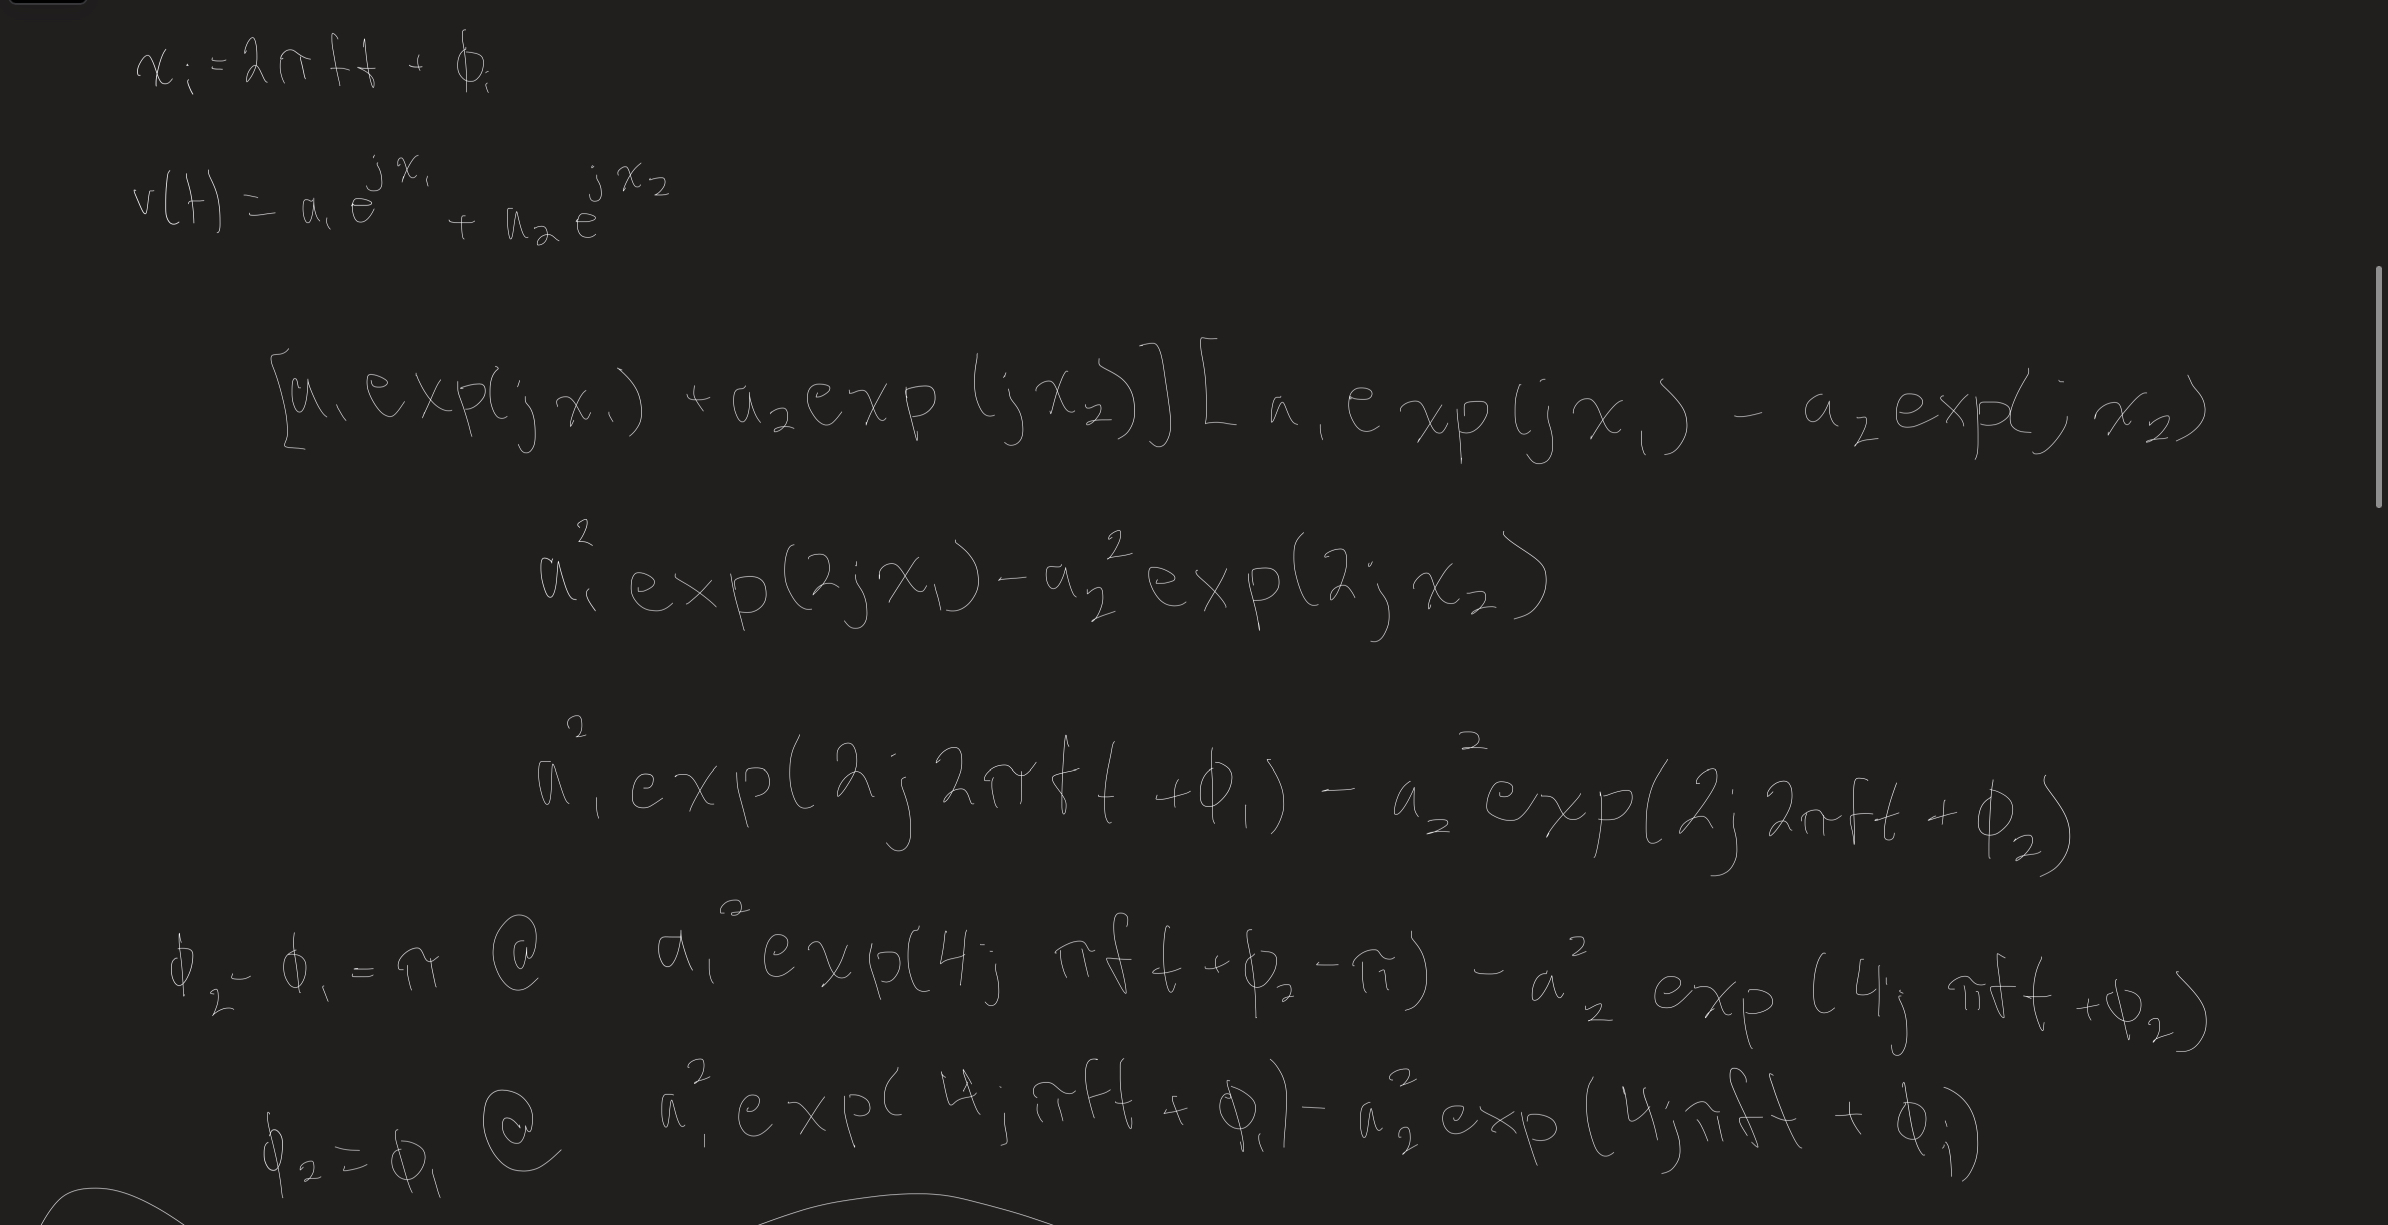 xᵢ = 2πft + ϕᵢ
v(t) = a₁e^{jx₁} + a₂e^{jx₂}
[a₁exp(jx₁) + a₂exp(jx₂)][a₁exp(jx₁) - a₂exp(jx₂)
a₁²exp(2jx₁) - a₂²exp(2jx₂)
a₁²exp(2j2πft + ϕ₁) - a₂²exp(2j2πft + ϕ₂)
ϕ₂ - ϕ₁ = π @ a₁²exp(4jπft + ϕ₂ - π) - a₂²exp(4jπft + ϕ₂)
ϕ₂ = ϕ₁ @ a₁²exp(4jπft + ϕ₁) - a₂²exp(4jπft + ϕ₁)